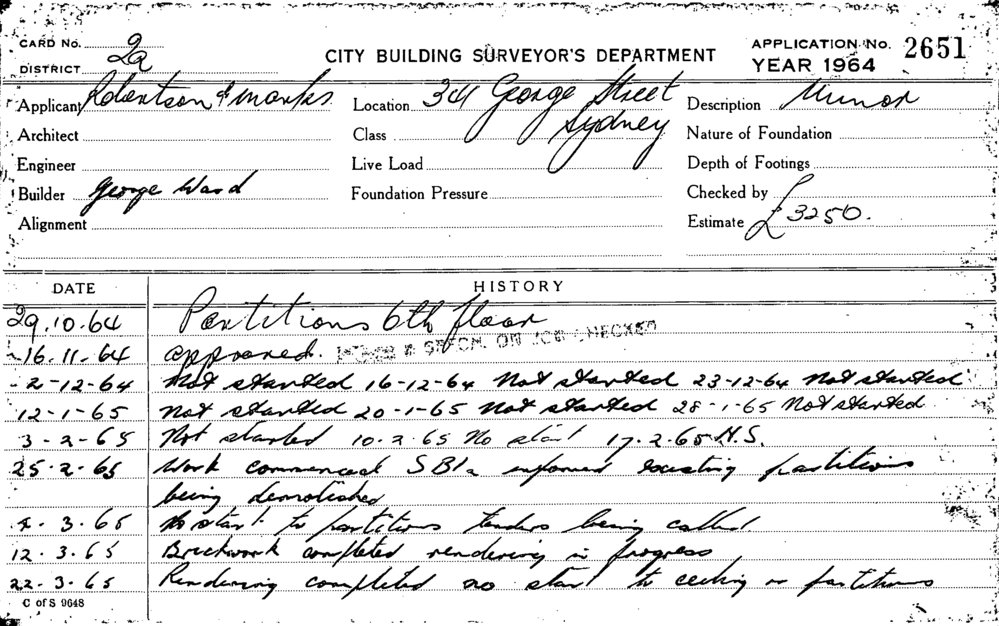 CARD No. 2a
DISTRICT
CITY BUILDING SURVEYOR'S DEPARTMENT
APPLICATION No. 2651
YEAR 1964
Applicant Robertson & Marks
Location 341 George Street Sydney
Description Minor
Architect
Class
Nature of Foundation
Engineer
Live Load
Depth of Footings
Builder George Ward
Foundation Pressure
Checked by
Alignment
Estimate £3250.
DATE HISTORY
29.10.64 Partitions 6th floor
16.11.64 approved. ON JOB CHECKED
2-12-64 Not started 16-12-64 Not started 23-12-64 Not started
12-1-65 Not started 20-1-65 Not started 28-1-65 Not started
3-2-65 Not started 10.2.65 No start 17.2.65 N.S.
25.2.65 Work commenced informed existing partitions
being demolished
4.3.65 No start to partitions tenders being called
12.3.65 Brickwork completed rendering in progress
22.3.65 Rendering completed no start to ceiling or partitions
C of S 9648